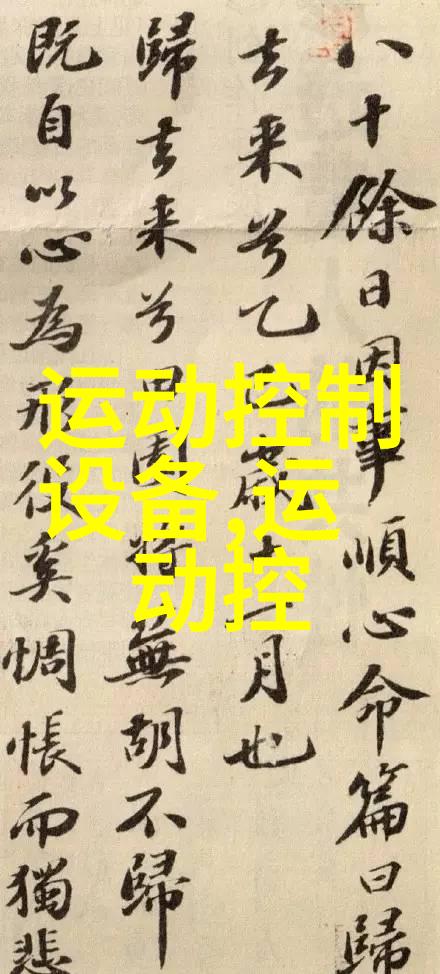 八十餘日因事順心命篇曰歸
去来兮乙巳歲十一月也
歸去来兮田園将蕪胡不歸
既自以心為形役矣惆悵而獨悲
运动控制
设备,运
动控